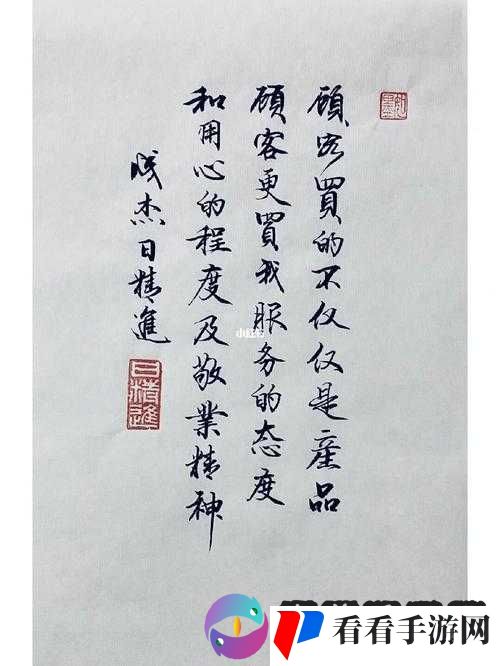 顾客買的不仅仅是產品
顾客更買我服务的态度
和用心的程度及敬業精神
成杰日精進
日精進
小红书
看看手游网